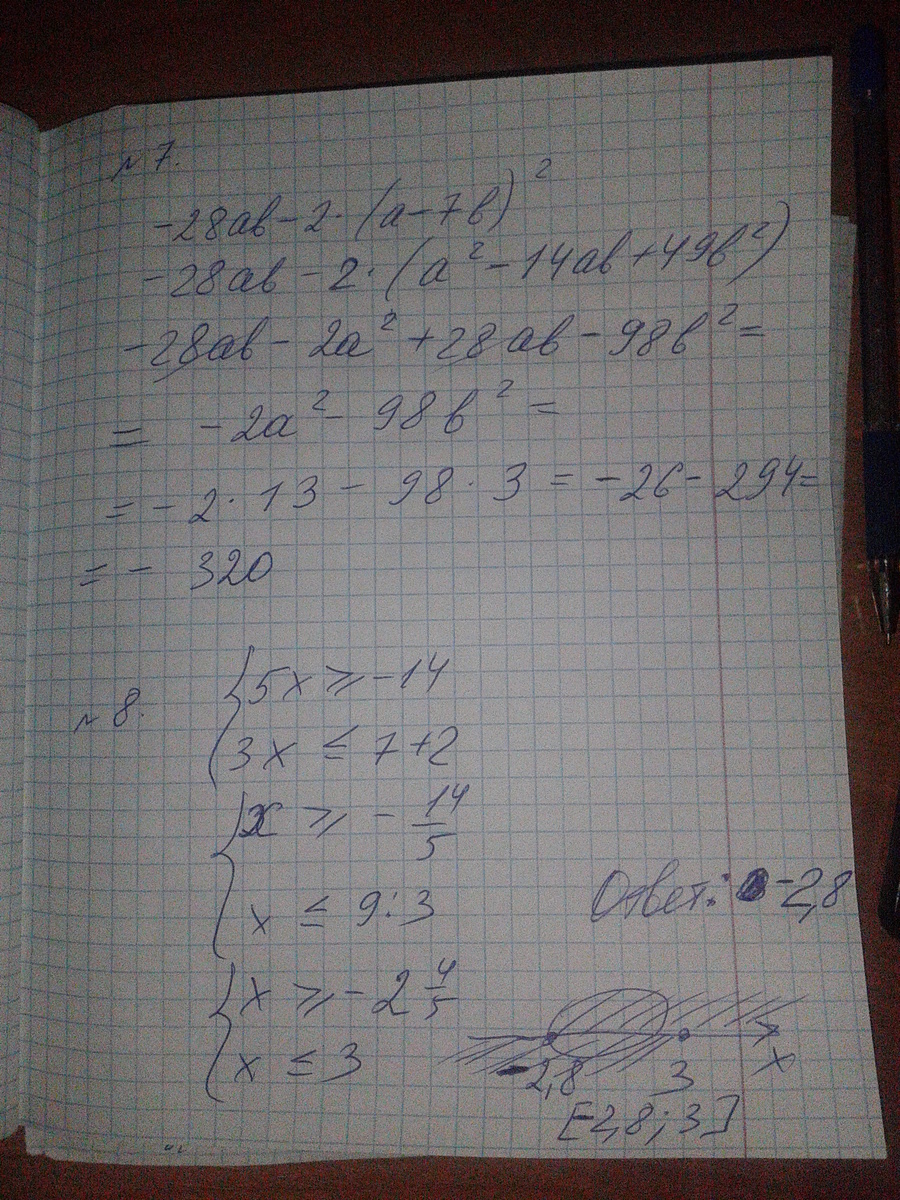 №7.
-28ab-2·(a-7b)²
-28ab-2·(a²-14ab+49b²)
-28ab-2a²+28ab-98b²=
= -2a²-98b²=
=-2·13-98·3=-26-294=
=-320
№8.
{5x⩾-14
3x≤7+2
{x⩾-14/5
x≤9:3
Ответ: -2,8
{x⩾-2 4/5
x≤3
-2,8 3 x
[-2,8;3]